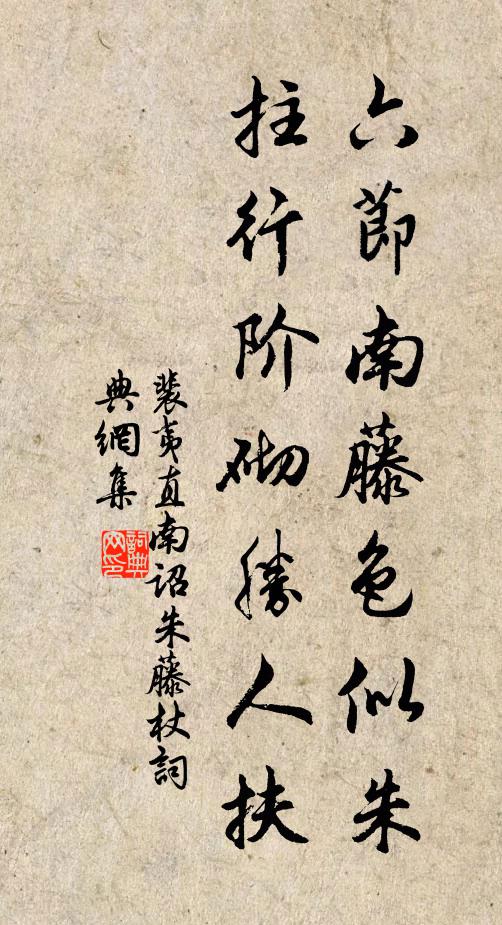 六節南藤色似朱
拄行阶砌勝人扶
裴夷直南诏朱藤杖詞
典網集
詞典网印